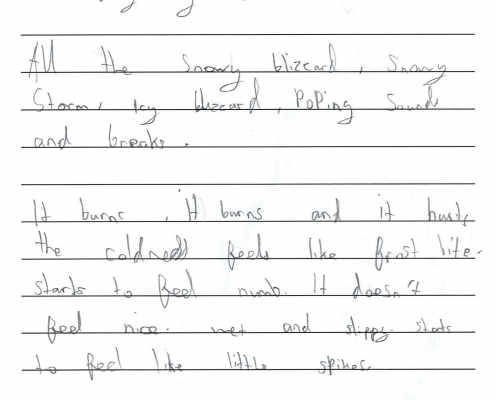 All the snowy blizzard, snowy
storm, icy blizzard, Poping sounds
and breaks.
It burns, It burns and it hurts,
the coldness feels like frost bite.
starts to feel numb. It doesn't
feel nice. wet and slippy. starts
to feel like little spikes.